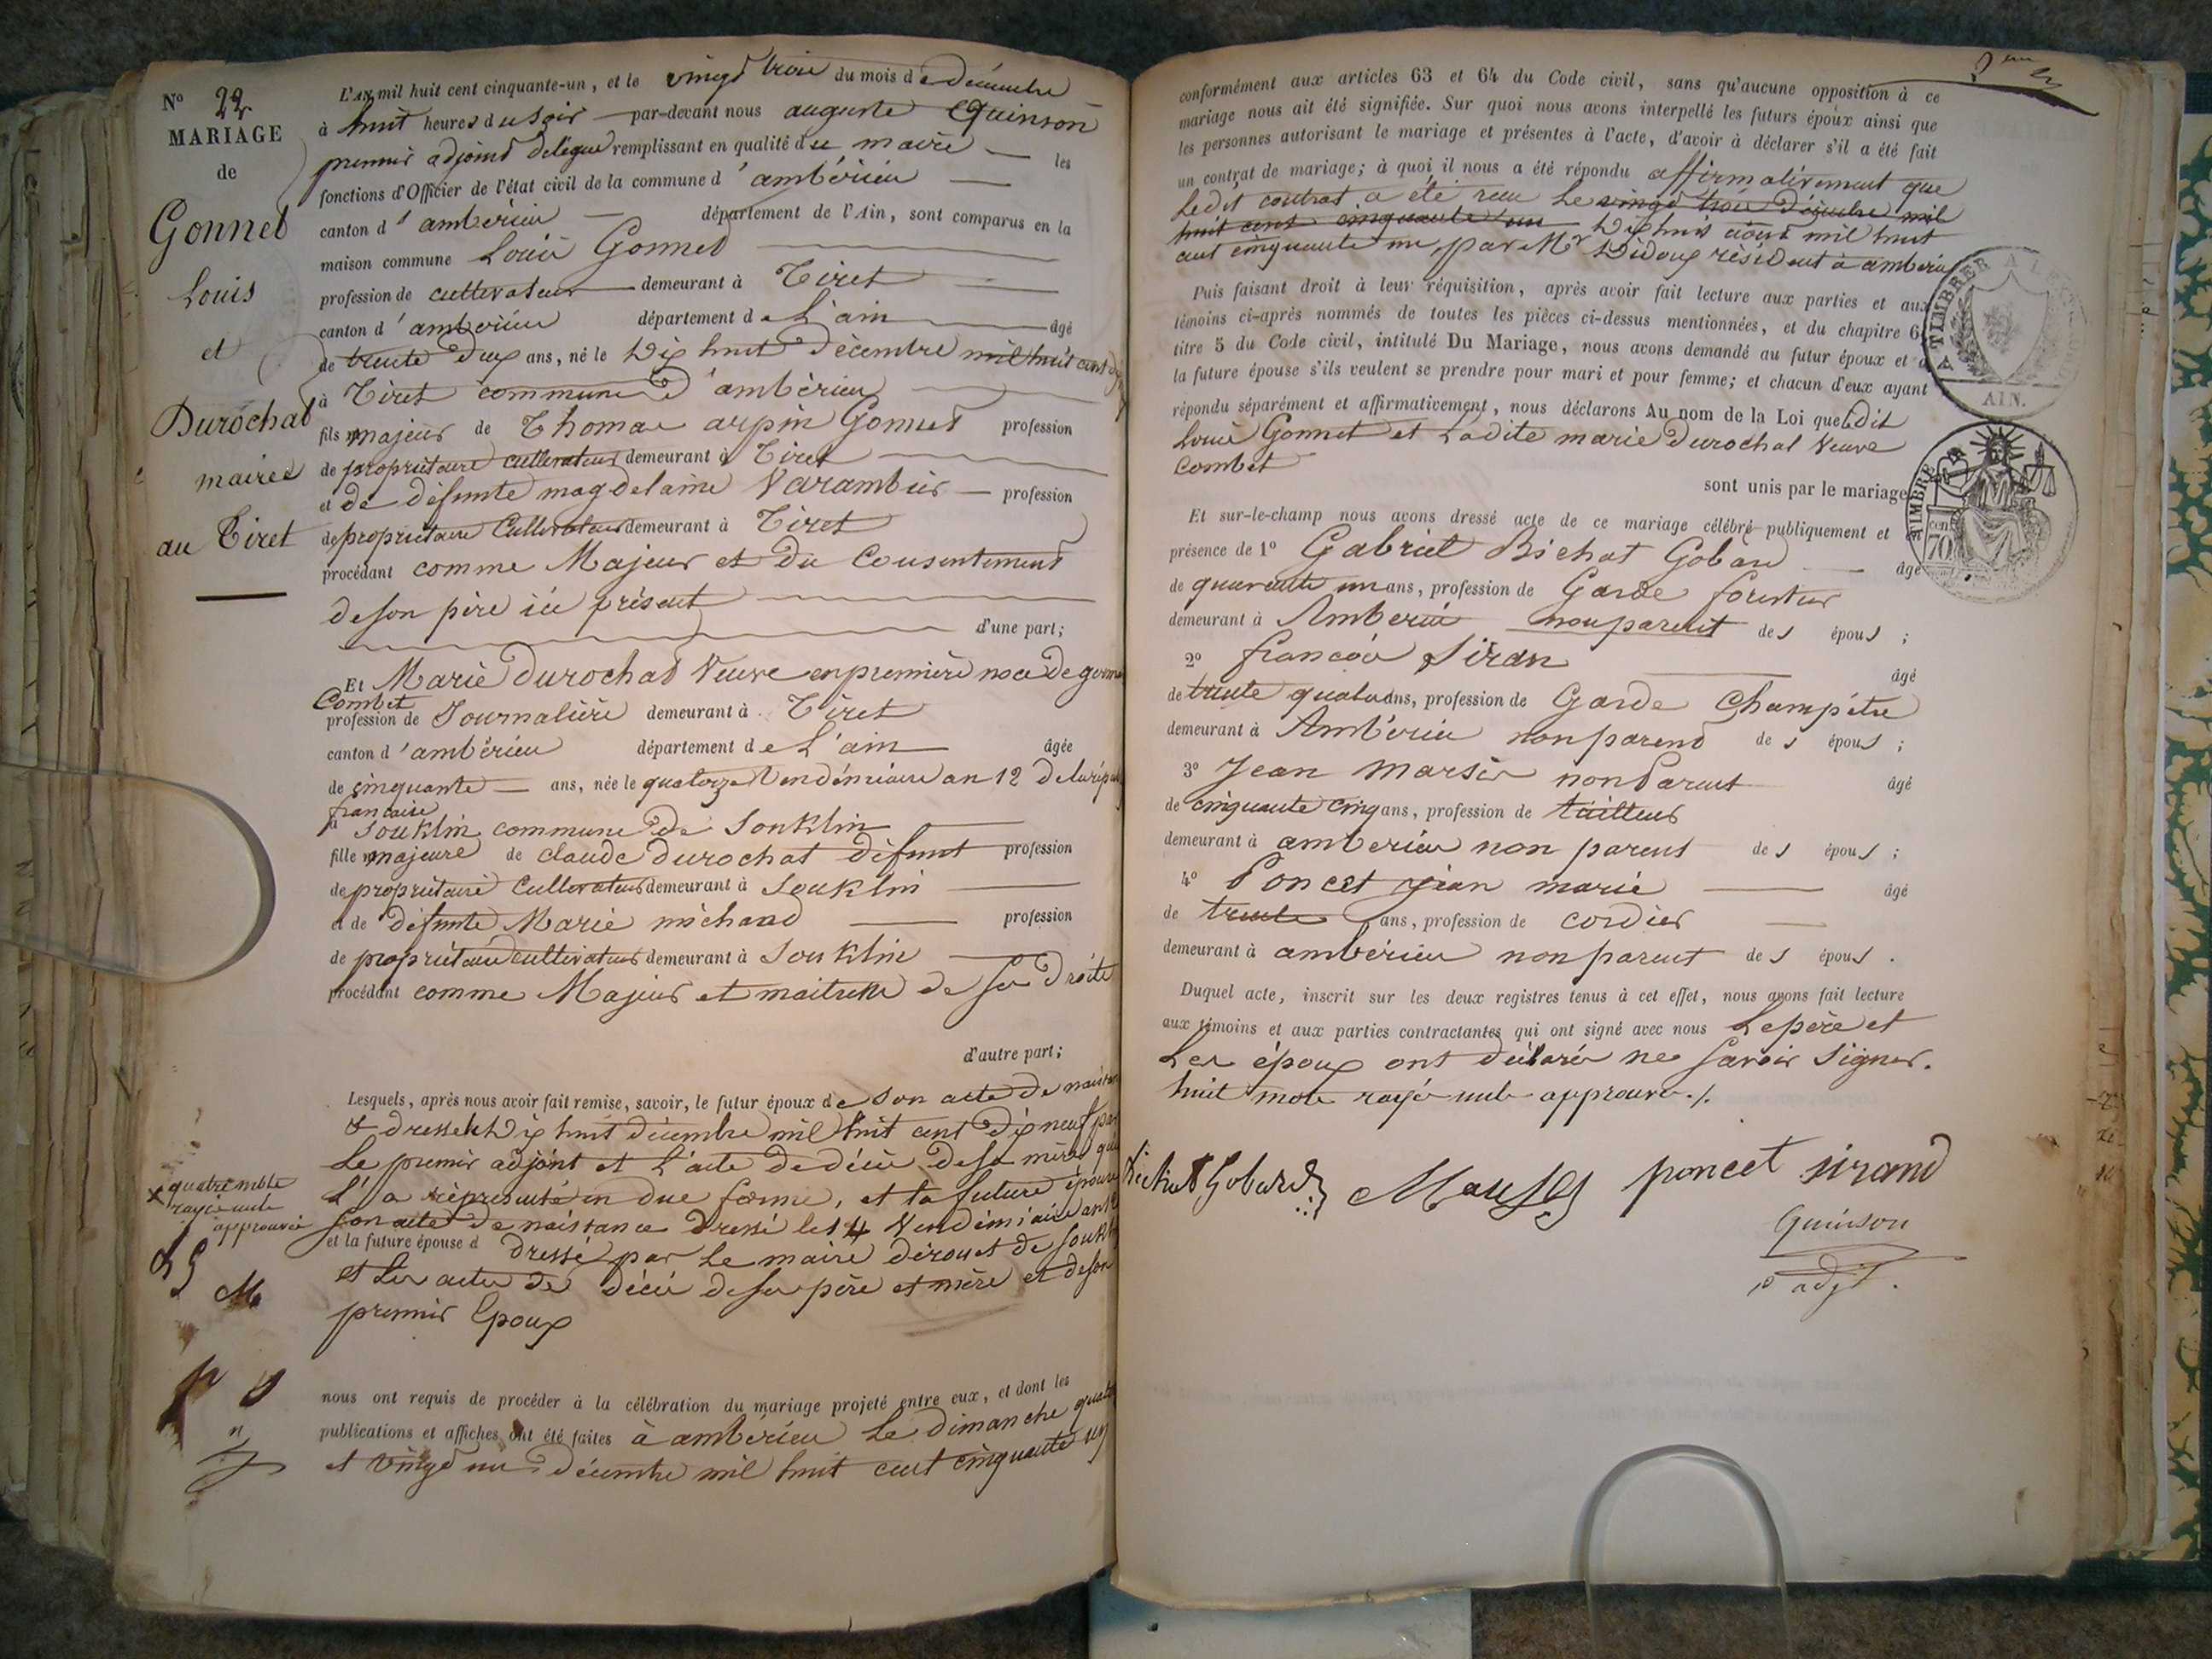 N° 22
MARIAGE
de
Gonnet
Louis
et
Durochat
mairee
au Tiret
L'AN mil huit cent cinquante-un, et le vingt trois du mois de décembre
à huit heures du soir par-devant nous auguste Quinson
premier adjoint délégué remplissant en qualité de maire les
fonctions d'Officier de l'état civil de la commune d'ambérieu
canton d'ambérieu département de l'Ain, sont comparus en la
maison commune Louis Gonnet
profession de cultivateur demeurant à Tiret
canton d'ambérieu département de L'ain âgé
de trente deux ans, né le dix huit décembre mil huit cent dix
à Tiret commune d'ambérieu
fils majeur de Thomas arpin Gonnet profession
de propriétaire cultivateur demeurant à Tiret
et de défunte magdelaine Varambier profession
de propriétaire Cultivateur demeurant à Tiret
procédant comme Majeur et du Consentement
de son père ici présent
d'une part;
Et Marie Durochat Veuve en première noce de
Combet
profession de Journalière demeurant à Tiret
canton d'ambérieu département de L'ain âgée
de cinquante ans, née le quatorze Vendémiaire an 12 de la répub
française
à Souklin commune de Souklin
fille majeure de claude durochat défunt profession
de propriétaire Cultivateur demeurant à Souklin
et de défunte Marie michaud profession
de propriétaire cultivateur demeurant à Souklin
procédant comme Majeur et maitresse de ses droits
d'autre part;
Lesquels, après nous avoir fait remise, savoir, le futur époux de son acte de naissan
dressé le dix huit décembre mil huit cent dix neuf par
Le premier adjoint et L'acte de décès de sa mère qu'il
L'a représenté en due forme, et la future épouse
son acte de naissance dressé les 14 Vendémiaire an 12
et la future épouse d dressé par le maire de Souklin
et Les actes de décès de ses père et mère et de son
premier Epoux
x quatre mots
rayés nuls
approuvés
M
nous ont requis de procéder à la célébration du mariage projeté entre eux, et dont les
publications et affiches ont été faites à ambérieu Le dimanche quatorze
et vingt un décembre mil huit cent cinquante un
conformément aux articles 63 et 64 du Code civil, sans qu'aucune opposition à ce
mariage nous ait été signifiée. Sur quoi nous avons interpellé les futurs époux ainsi que
les personnes autorisant le mariage et présentes à l'acte, d'avoir à déclarer s'il a été fait
un contrat de mariage; à quoi il nous a été répondu affirmativement que
Ledit contrat a été reçu Le vingt trois décembre mil
huit cent cinquante un dix huit août mil huit
cent cinquante un, par Mr Didoux résident à ambérieu
Puis faisant droit à leur réquisition, après avoir fait lecture aux parties et aux
témoins ci-après nommés de toutes les pièces ci-dessus mentionnées, et du chapitre 6,
titre 5 du Code civil, intitulé Du Mariage, nous avons demandé au futur époux et à
la future épouse s'ils veulent se prendre pour mari et pour femme; et chacun d'eux ayant
répondu séparément et affirmativement, nous déclarons Au nom de la Loi que Ledit
Louis Gonnet et Ladite marie Durochat Veuve
Combet
sont unis par le mariage
Et sur-le-champ nous avons dressé acte de ce mariage célébré publiquement et
présence de 1° Gabriel Bichat Gobard âgé
de quarante un ans, profession de Garde forestier
demeurant à Ambérieu non parent des époux;
2° francois Siran âgé
de trente quatre ans, profession de Garde Champêtre
demeurant à Ambérieu non parent des époux;
3° Jean Marsis non Parent âgé
de cinquante cinq ans, profession de tailleur
demeurant à ambérieu non parent des époux;
4° Poncet jean marie âgé
de trente ans, profession de cordier
demeurant à ambérieu non parent des époux.
Duquel acte, inscrit sur les deux registres tenus à cet effet, nous avons fait lecture
aux témoins et aux parties contractantes qui ont signé avec nous Le père et
Les époux ont déclaré ne savoir signer.
huit mots rayés nuls approuvés ./.
Bichat Gobard poncet sirand
Quinson
adjt.
A TIMBRER
AIN.
TIMBRE
70 cen